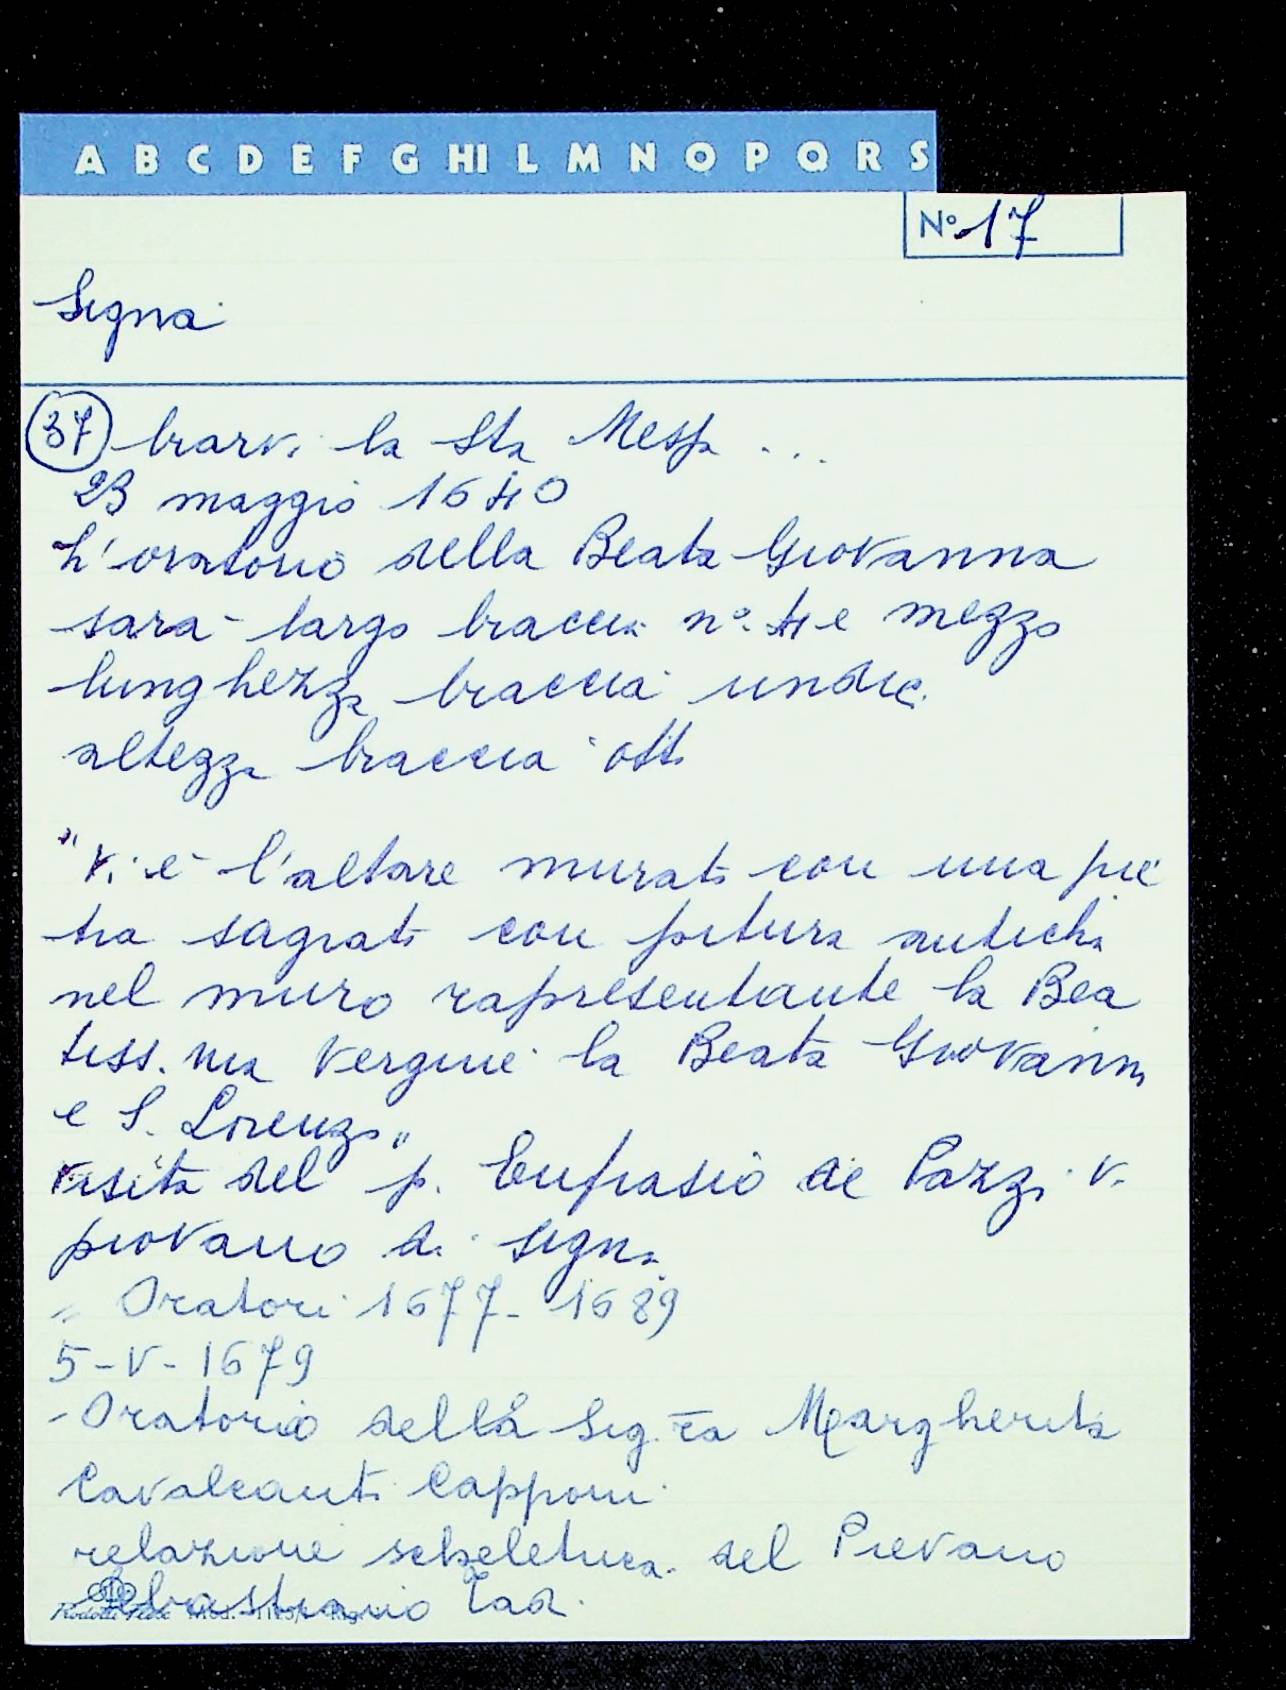 A B C D E F G HI L M N O P Q R S
N° 17
Signa
37 brarvi la Sta Messa ...
23 maggio 1640
L'oratorio della Beata Giovanna
sarà largo braccia n°. 4 e mezzo
lunghezza braccia undic.
altezza braccia otto
"Vi è l'altare murato con una pie
tra sagrata con pitura anticha
nel muro rapresentante la Bea
tiss.ma Vergine la Beata Giovanna
e S. Lorenzo"
visita del p. Eufrasio de Pazzi v.
piovano di Signa
" Oratori 1677-1689
5-V-1679
-Oratorio della Sig.ra Margherita
Cavalcanti Capponi
relazione scheletrica del Pievano
Sebastiano Tad.